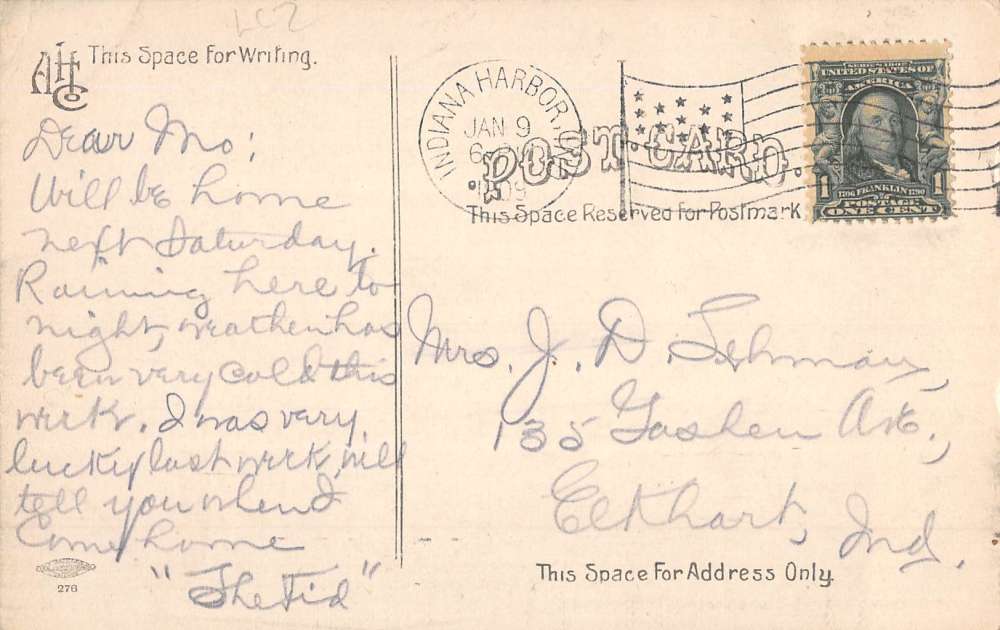 LCZ
AHCo
This Space For Writing.
Dear Mo;
Will be home
next Saturday.
Raining here to
night, weather has
been very cold this
week. I was very
lucky last week, will
tell you when I
come home
"The Kid"
276
INDIANA HARBOR, IND
JAN 9
6
1909
POST CARD.
This Space Reserved for Postmark
SERIES 1902
UNITED STATES OF
AMERICA
1 1706 FRANKLIN 1790 1
POSTAGE
ONE CENT
Mrs. J. D. Lehman,
135 Goshen Ave.,
Elkhart, Ind.
This Space For Address Only.